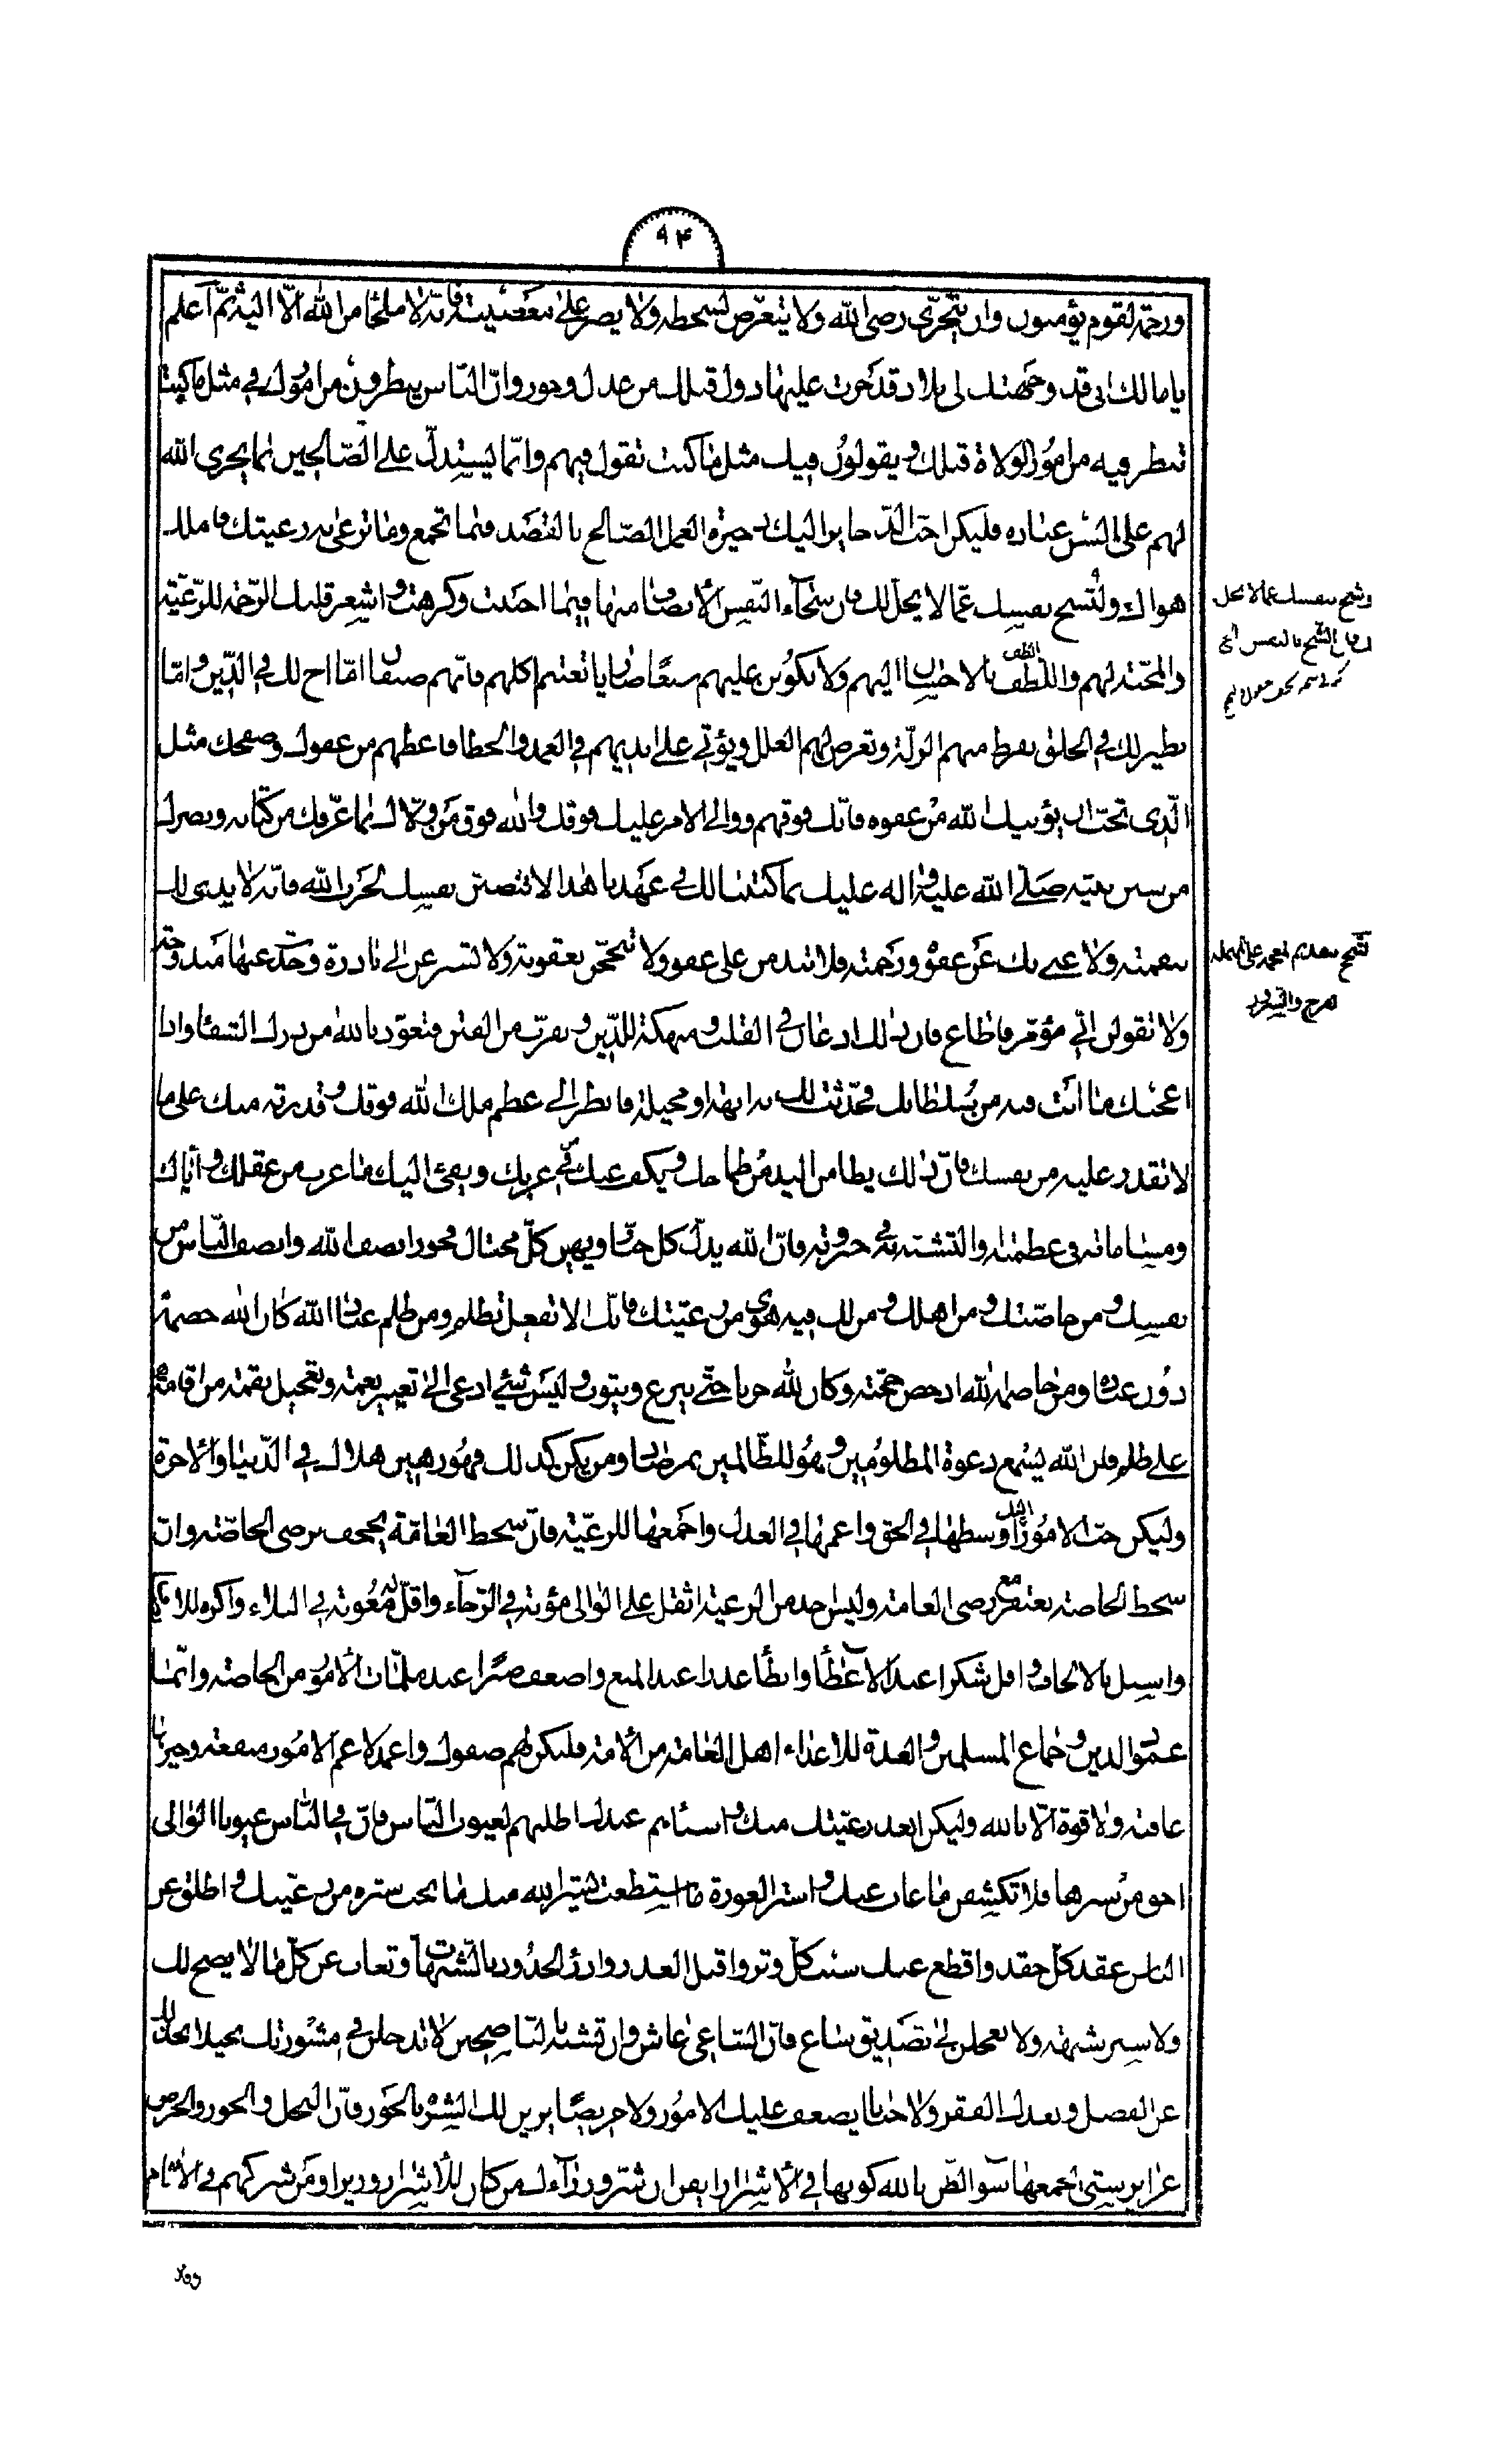 ٩۴
ورحمة لقوم يؤمنون وان يتحرّى رضى الله ولا يتعرّض لسخطه ولا يصر على معصيته فانه لا ملجأ من الله الّا اليه ثمّ اعلم
يا مالك انى قد وجّهتك الى بلاد قد جرت عليها دول قبلك من عدل وجور وانّ النّاس ينظرون من امورك فى مثل ما كنت
تنظر فيه من امور الولاة قبلك ويقولون فيك مثل ما كنت تقول فيهم وانّما يستدلّ على الصّالحين بما يجرى الله
لهم على السن عباده فليكن احبّ الذّخاير اليك ذخيرة العمل الصّالح بالقصد فيما تجمع وما ترعى به رعيتك فاملك
هواك ولتسح بنفسك عمّا لا يحلّ لك فان سخآء النّفس الانصاف منها فيما احببت وكرهت واشعر قلبك الرّحمة للرّعيّة
والمحبّة لهم واللطف بالاحسان اليهم ولا تكونن عليهم سبعا ضاريا تغتنم اكلهم فانّهم صنفان امّا اخ لك فى الدّين وامّا
نظير لك فى الخلق يفرط منهم الزلّة وتعرض لهم العلل ويؤتى على ايديهم فى العمد والخطا فاعطهم من عفوك وصفحك مثل
الّذى تحبّ ان يؤتيك الله من عفوه فانّك فوقهم ووالى الامر عليك فوقك والله فوق من ولّاك بما عرّفك من كتابه وبصرك
من سنن نبيّه صلّى الله عليه واله عليك بما كتبنا لك فى عهدنا هذا لا تنصبنّ نفسك لحرب الله فانه لا يدى لك
بنقمته ولا غنى بك عن عفوه ورحمته فلا تندمن على عفو ولا تبجحن بعقوبة ولا تسرعن الى بادرة وجدت عنها مندوحة
ولا تقولن انّى مؤمّر فاطاع فان ذلك ادغال فى القلب ومنهكة للدّين وتقرب من الفتن فتعوّذ بالله من درك الشقاء واذا
اعجبك ما انت فيه من سلطانك فحدّثت لك به ابهة او مخيلة فانظر الى عظم ملك الله فوقك وقدرته منك على ما
لا تقدر عليه من نفسك فانّ ذلك يطامن اليك من طماحك ويكف عنك من غربك ويفئ اليك ما عزب من عقلك وايّاك
ومساماته فى عظمته والتشبّه به فى جبروته فانّ الله يذلّ كل جبّار ويهين كلّ مختال فخور انصف الله وانصف النّاس من
نفسك ومن خاصّتك ومن اهلك ومن لك فيه هوى من رعيّتك فانّك الا تفعل تظلم ومن ظلم عباد الله كان الله خصمه
دون عباده ومن خاصمه الله ادحض حجّته وكان لله حربا حتّى ينزع ويتوب وليس شئ ادعى الى تغيير نعمة وتعجيل نقمة من اقامة
على ظلم فان الله يسمع دعوة المظلومين وهو للظّالمين بمرصاد ومن يكن كذلك فهو رهين هلاك فى الدّنيا والاخرة
وليكن احبّ الامور اليك اوسطها فى الحق واعمها فى العدل واجمعها للرعيّة فانّ سخط العامّة يجحف برضى الخاصّة وان
سخط الخاصة يغتفر مع رضى العامة وليس احد من الرعية اثقل على الوالى مؤنة فى الرّخآء واقلّ له معونة فى البلاء واكره للانصاف
واسئل بالالحاف واقل شكرا عند الاعطآء وابطأ عذرا عند المنع واضعف صبرا عند ملمّات الامور من الخاصة وانّما
عمود الدين وجماع المسلمين والعدة للاعداء اهل العامة من الامة فليكن لهم صغوك واعمد لاعم الامور منفعة وخيرها
عاقبة ولا قوة الّا بالله وليكن ابعد رعيّتك منك واشنأهم عندك اطلبهم لعيوب النّاس فانّ فى النّاس عيوبا الوالى
احق من سترها فلا تكشفن ما غاب عنك واستر العورة ما استطعت يستر الله منك ما تحب ستره من رعيّتك واطلق عن
الناس عقد كلّ حقد واقطع عنك سبب كلّ وتر واقبل العذر وادرؤ الحدود بالشّبهات وتغاب عن كلّ ما لا يصح لك
ولا شبهة ولا تعجلن الى تصديق ساع فانّ السّاعى غاش وان تشبّه بالنّاصحين لا تدخلن فى مشورتك بخيلا يخذلك
عن الفضل ويعدك الفقر ولا جبانا يضعف عليك الامور ولا حريصا يزين لك الشره بالجور فانّ البخل والجور والحرص
غرايز شتى يجمعها سوء الظّن بالله كونها فى الاشرار ايقن ان شرّ وزرآءك من كان للاشرار وزيرا ومن شركهم فى الاثام
وشح بنفسك عما لا يحل
لك فان الشّح بالنفس الخ